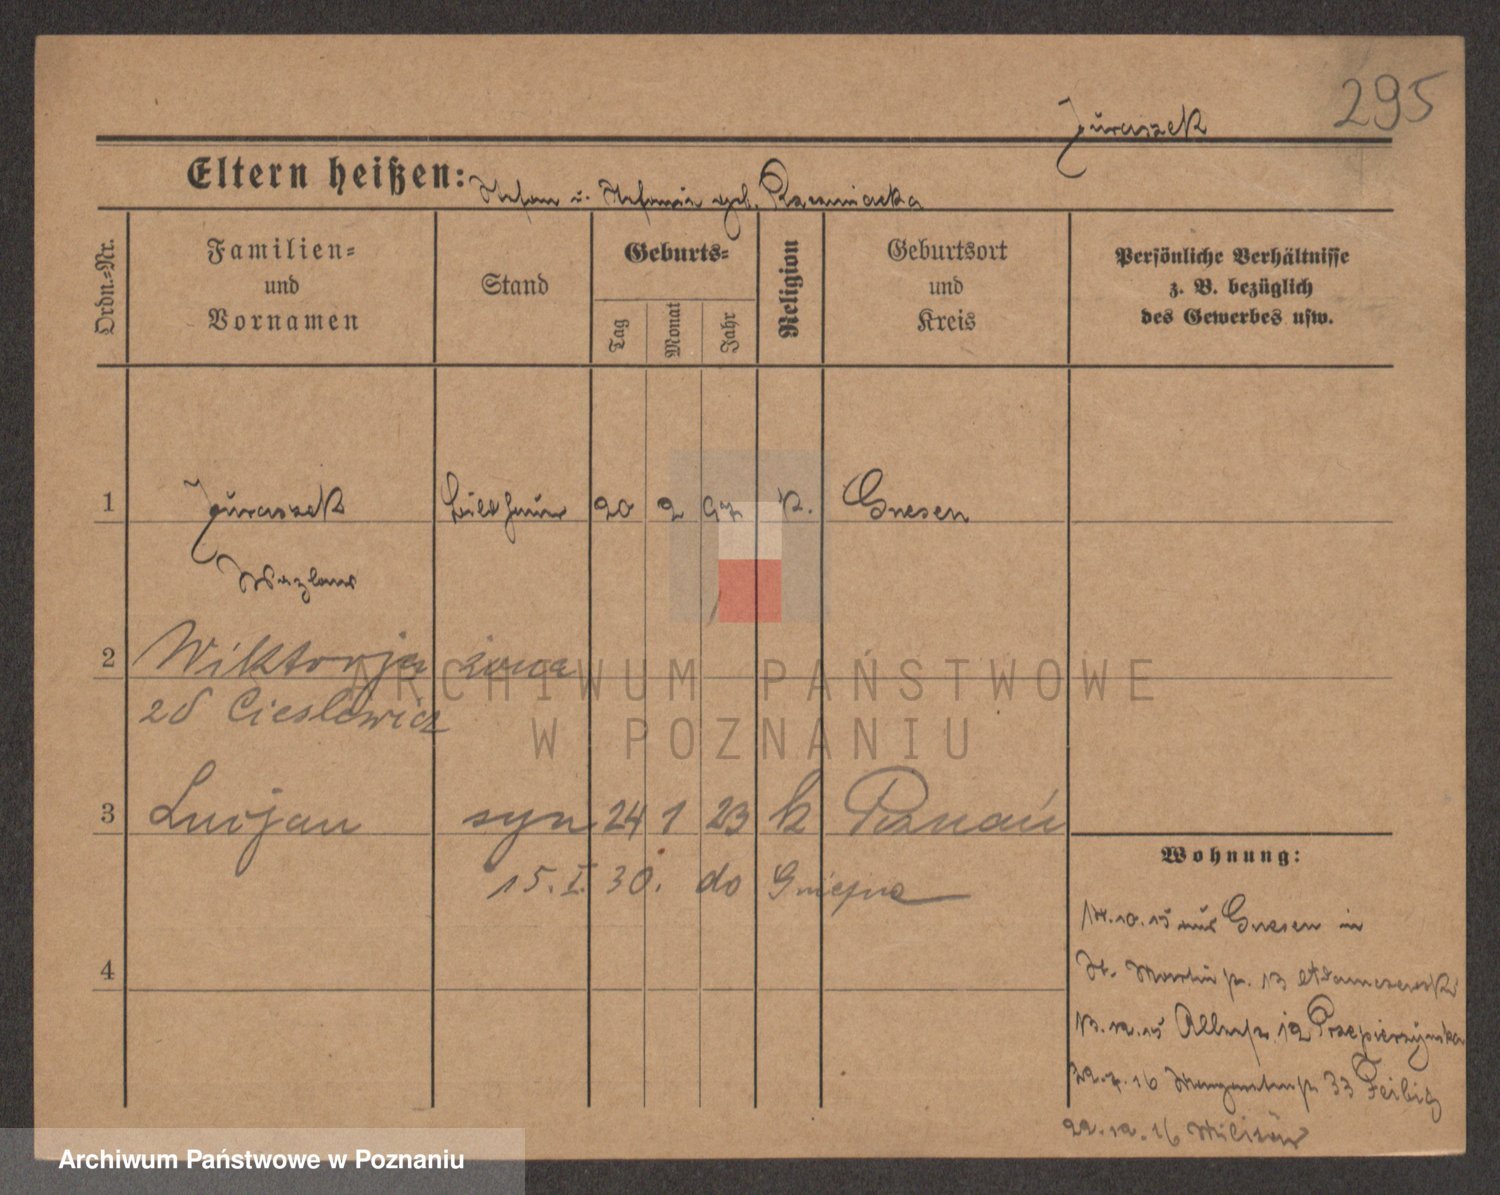 295
Juraszek
Eltern heißen: Stefan u. Stefania geb.
Ordn.-Nr.
Familien-
und
Vornamen
Stand
Geburts-
Tag
Monat
Jahr
Religion
Geburtsort
und
Kreis
Persönliche Verhältnisse
z. B. bezüglich
des Gewerbes usw.
1 Juraszek Bildhauer 20 2 97 K. Gnesen
Wazlaus
2 Wiktorja żona
zd Cieslewicz
3 Lucjan syn 24 1 23 k Poznań
15. I. 30. do Gniezna
4
Wohnung:
14.10.15 aus Gnesen in
St. Martin 13 Adamczewski
13.12.15 12 Przepierzynska
33 Feibig
22.12.16 Militär
ARCHIWUM PAŃSTWOWE
W POZNANIU
Archiwum Państwowe w Poznaniu